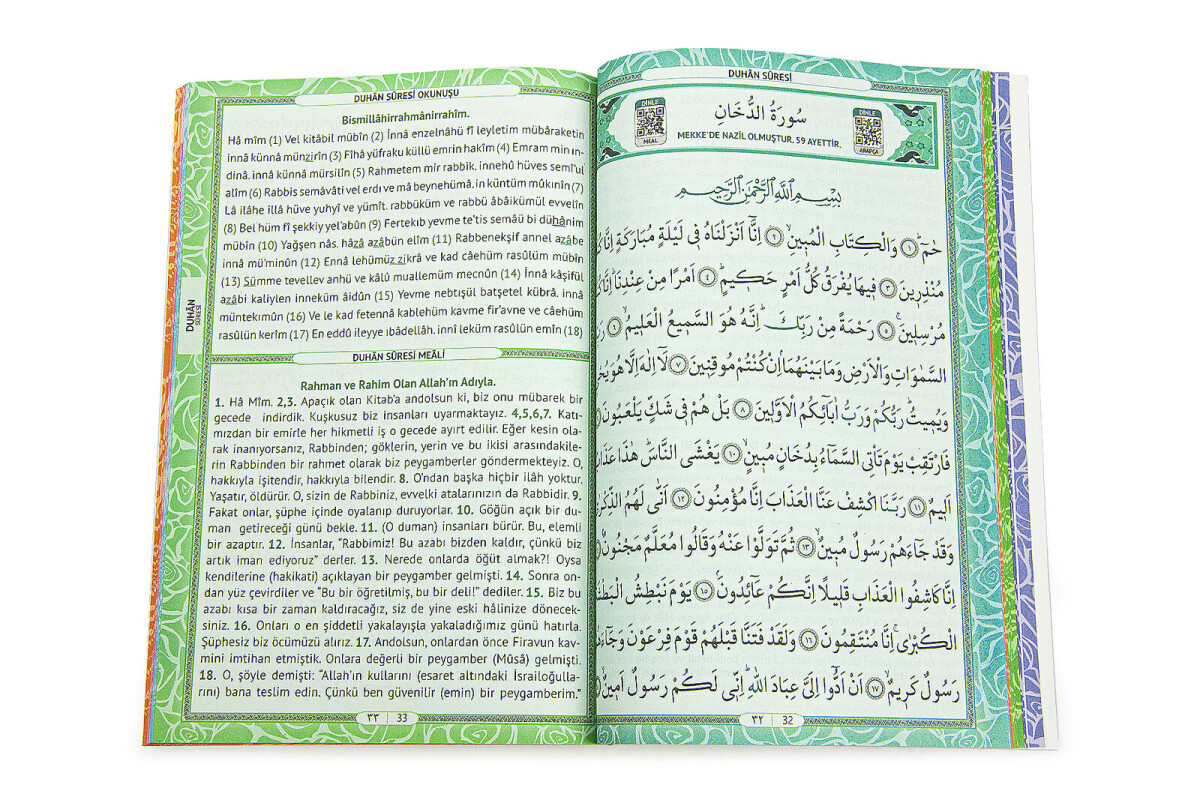 DUHÂN SÛRESİ
DİNLE
MEAL
سُورَةُ الدُّخَانِ
MEKKE'DE NAZİL OLMUŞTUR. 59 AYETTİR.
DİNLE
ARAPÇA
بِسْمِ اللّٰهِ الرَّحْمٰنِ الرَّحِيمِ
حٰمٓ ۚ ﴿١﴾ وَالْكِتَابِ الْمُبِينِۙ ﴿٢﴾ اِنَّٓا اَنْزَلْنَاهُ فِي لَيْلَةٍ مُبَارَكَةٍ اِنَّا
مُنْذِرِينَ ﴿٣﴾ فِيهَا يُفْرَقُ كُلُّ اَمْرٍ حَكِيمٍۙ ﴿٤﴾ اَمْرًا مِنْ عِنْدِنَاۜ اِنَّا
مُرْسِلِينَۚ ﴿٥﴾ رَحْمَةً مِنْ رَبِّكَۜ اِنَّهُ هُوَ السَّمِيعُ الْعَلِيمُۙ ﴿٦﴾
السَّمٰوَاتِ وَالْاَرْضِ وَمَا بَيْنَهُمَاۢ اِنْ كُنْتُمْ مُوقِنِينَ ﴿٧﴾ لَٓا اِلٰهَ اِلَّا هُوَ
وَيُمِيتُۜ رَبُّكُمْ وَرَبُّ اٰبَٓائِكُمُ الْاَوَّلِينَ ﴿٨﴾ بَلْ هُمْ فِي شَكٍّ يَلْعَبُونَ
فَارْتَقِبْ يَوْمَ تَأْتِي السَّمَٓاءُ بِدُخَانٍ مُبِينٍۙ ﴿١٠﴾ يَغْشَى النَّاسَۜ هٰذَا
اَلِيمٌ ﴿١١﴾ رَبَّنَا اكْشِفْ عَنَّا الْعَذَابَ اِنَّا مُؤْمِنُونَ ﴿١٢﴾ اَنّٰى لَهُمُ
وَقَدْ جَٓاءَهُمْ رَسُولٌ مُبِينٌۙ ﴿١٣﴾ ثُمَّ تَوَلَّوْا عَنْهُ وَقَالُوا مُعَلَّمٌ مَجْنُونٌۢ
اِنَّا كَاشِفُوا الْعَذَابِ قَلِيلًا اِنَّكُمْ عَٓائِدُونَۢ ﴿١٥﴾ يَوْمَ نَبْطِشُ
الْكُبْرٰىۚ اِنَّا مُنْتَقِمُونَ ﴿١٦﴾ وَلَقَدْ فَتَنَّا قَبْلَهُمْ قَوْمَ فِرْعَوْنَ
رَسُولٌ كَرِيمٌۙ ﴿١٧﴾ اَنْ اَدُّٓوا اِلَيَّ عِبَادَ اللّٰهِۜ اِنِّي لَكُمْ رَسُولٌ اَمِينٌۙ
٣٢ 32
DUHÂN SÛRESİ OKUNUŞU
Bismillâhirrahmânirrahîm.
Hâ mîm (1) Vel kitâbil mübîn (2) İnnâ enzelnâhü fî leyletim mübâraketin
innâ künnâ münzirîn (3) Fîhâ yüfraku küllü emrin hakîm (4) Emram min ın-
dinâ. innâ künnâ mürsilîn (5) Rahmetem mir rabbik. innehû hüves semî'ul
alîm (6) Rabbis semâvâti vel erdı ve mâ beynehümâ. in küntüm mûkınîn (7)
Lâ ilâhe illâ hüve yuhyî ve yümît. rabbüküm ve rabbü âbâikümül evvelîn
(8) Bel hüm fî şekkiy yel'abûn (9) Fertekıb yevme te'tis semâü bi dühânim
mübîn (10) Yağşen nâs. hâzâ azâbün elîm (11) Rabbenekşif annel azâbe
innâ mü'minûn (12) Ennâ lehümüz zikrâ ve kad câehüm rasûlüm mübîn
(13) Sümme tevellev anhü ve kâlû muallemüm mecnûn (14) İnnâ kâşifül
azâbi kaliylen inneküm âidûn (15) Yevme nebtışül batşetel kübrâ. innâ
müntekımûn (16) Ve le kad fetennâ kablehüm kavme fir'avne ve câehüm
rasûlün kerîm (17) En eddû ileyye ıbâdellâh. innî leküm rasûlün emîn (18)
DUHÂN
SÛRESİ
DUHÂN SÛRESİ MEÂLİ
Rahman ve Rahim Olan Allah'ın Adıyla.
1. Hâ Mîm. 2,3. Apaçık olan Kitab'a andolsun ki, biz onu mübarek bir
gecede indirdik. Kuşkusuz biz insanları uyarmaktayız. 4,5,6,7. Katı-
mızdan bir emirle her hikmetli iş o gecede ayırt edilir. Eğer kesin ola-
rak inanıyorsanız, Rabbinden; göklerin, yerin ve bu ikisi arasındakile-
rin Rabbinden bir rahmet olarak biz peygamberler göndermekteyiz. O,
hakkıyla işitendir, hakkıyla bilendir. 8. O'ndan başka hiçbir ilâh yoktur.
Yaşatır, öldürür. O, sizin de Rabbiniz, evvelki atalarınızın da Rabbidir. 9.
Fakat onlar, şüphe içinde oyalanıp duruyorlar. 10. Göğün açık bir du-
man getireceği günü bekle. 11. (O duman) insanları bürür. Bu, elemli
bir azaptır. 12. İnsanlar, "Rabbimiz! Bu azabı bizden kaldır, çünkü biz
artık iman ediyoruz" derler. 13. Nerede onlarda öğüt almak?! Oysa
kendilerine (hakikati) açıklayan bir peygamber gelmişti. 14. Sonra on-
dan yüz çevirdiler ve "Bu bir öğretilmiş, bu bir deli!" dediler. 15. Biz bu
azabı kısa bir zaman kaldıracağız, siz de yine eski hâlinize dönecek-
siniz. 16. Onları o en şiddetli yakalayışla yakaladığımız günü hatırla.
Şüphesiz biz öcümüzü alırız. 17. Andolsun, onlardan önce Firavun kav-
mini imtihan etmiştik. Onlara değerli bir peygamber (Mûsâ) gelmişti.
18. O, şöyle demişti: "Allah'ın kullarını (esaret altındaki İsrailoğulla-
rını) bana teslim edin. Çünkü ben güvenilir (emin) bir peygamberim."
٣٣ 33